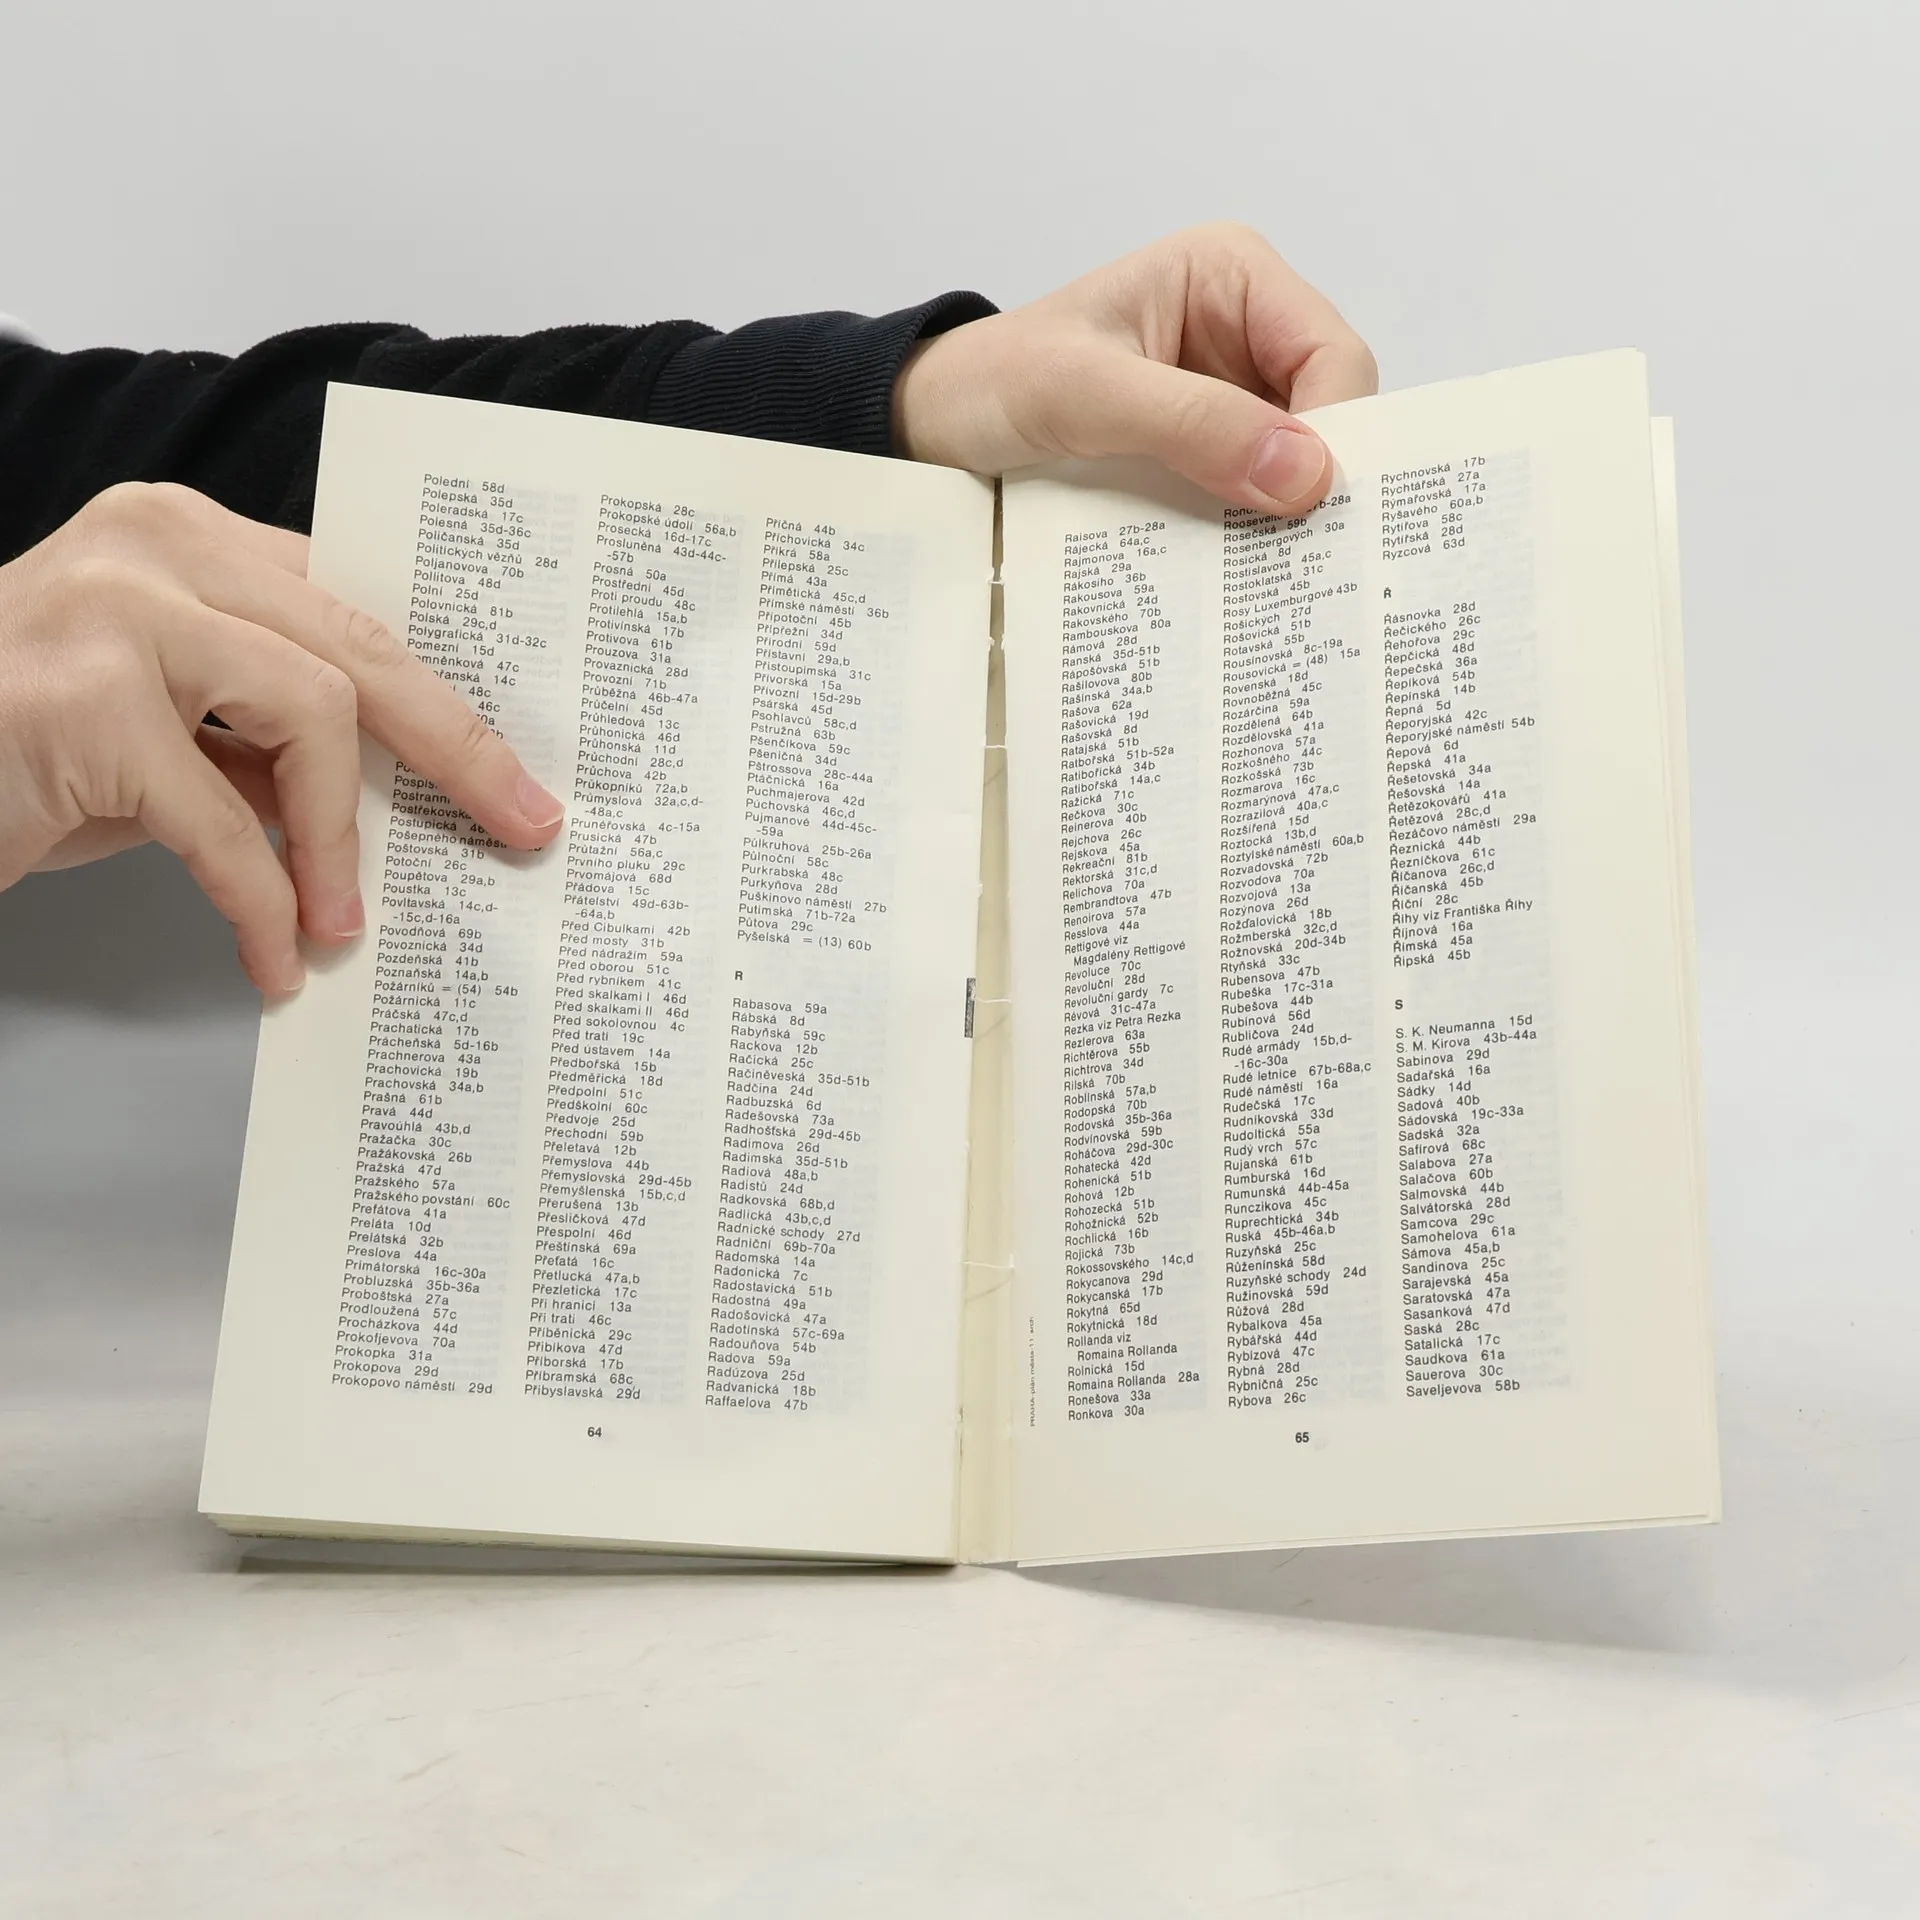 Polední 58d
Polepská 35d
Poleradská 17c
Polesná 35d-36c
Poličanská 35d
Politických vězňů 28d
Poljanovova 70b
Pollitova 48d
Polní 25d
Polovnická 81b
Polská 29c,d
Polygrafická 31d-32c
Pomezní 15d
omněnková 47c
ořanská 14c
48c
46c
70a
Pospís
Postranní
Postřekovská
Postupická 46
Pošepného náměstí
Poštovská 31b
Potoční 26c
Poupětova 29a,b
Poustka 13c
Povltavská 14c,d-
-15c,d-16a
Povodňová 69b
Povoznická 34d
Pozdeňská 41b
Poznaňská 14a,b
Požárníků = (54) 54b
Požárnická 11c
Práčská 47c,d
Prachatická 17b
Prácheňská 5d-16b
Prachnerova 43a
Prachovická 19b
Prachovská 34a,b
Prašná 61b
Pravá 44d
Pravoúhlá 43b,d
Pražačka 30c
Pražákovská 26b
Pražská 47d
Pražského 57a
Pražského povstání 60c
Prefátova 41a
Preláta 10d
Prelátská 32b
Preslova 44a
Primátorská 16c-30a
Probluzská 35b-36a
Proboštská 27a
Prodloužená 57c
Procházkova 44d
Prokofjevova 70a
Prokopka 31a
Prokopova 29d
Prokopovo náměstí 29d
Prokopská 28c
Prokopské údolí 56a,b
Prosecká 16d-17c
Prosluněná 43d-44c-
-57b
Prosná 50a
Prostřední 45d
Proti proudu 48c
Protilehlá 15a,b
Protivínská 17b
Protivova 61b
Prouzova 31a
Provaznická 28d
Provozní 71b
Průběžná 46b-47a
Průčelní 45d
Průhledová 13c
Průhonická 46d
Průhonská 11d
Průchodní 28c,d
Průchova 42b
Průkopníků 72a,b
Průmyslová 32a,c,d-
-48a,c
Prunéřovská 4c-15a
Prusická 47b
Průtažní 56a,c
Prvního pluku 29c
Prvomájová 68d
Přádova 15c
Přátelství 49d-63b-
-64a,b
Před Cibulkami 42b
Před mosty 31b
Před nádražím 59a
Před oborou 51c
Před rybníkem 41c
Před skalkami I 46d
Před skalkami II 46d
Před sokolovnou 4c
Před tratí 19c
Před ústavem 14a
Předbořská 15b
Předměřická 18d
Předpolní 51c
Předškolní 60c
Předvoje 25d
Přechodní 59b
Přeletavá 12b
Přemyslova 44b
Přemyslovská 29d-45b
Přemyšlenská 15b,c,d
Přerušená 13b
Přesličková 47d
Přespolní 46d
Přeštínská 69a
Přeťatá 16c
Přetlucká 47a,b
Přezletická 17c
Při hranici 13a
Při trati 46c
Příběnická 29c
Přibikova 47d
Příborská 17b
Příbramská 68c
Přibyslavská 29d
Příčná 44b
Příchovická 34c
Příkrá 58a
Přílepská 25c
Přímá 43a
Přímětická 45c,d
Přímské náměstí 36b
Přípotoční 45b
Přípřežní 34d
Přírodní 59d
Přístavní 29a,b
Přistoupimská 31c
Přívorská 15a
Přívozní 15d-29b
Psárská 45d
Psohlavců 58c,d
Pstružná 63b
Pšenčíkova 59c
Pšeničná 34d
Pštrossova 28c-44a
Ptáčnická 16a
Puchmajerova 42d
Púchovská 46c,d
Pujmanové 44d-45c-
-59a
Půlkruhová 25b-26a
Půlnoční 58c
Purkrabská 48c
Purkyňova 28d
Puškinovo náměstí 27b
Putimská 71b-72a
Půtova 29c
Pyšelská = (13) 60b
R
Rabasova 59a
Rábská 8d
Rabyňská 59c
Rackova 12b
Račická 25c
Račiněveská 35d-51b
Radčina 24d
Radbuzská 6d
Radešovská 73a
Radhošťská 29d-45b
Radimova 26d
Radimská 35d-51b
Radiová 48a,b
Radistů 24d
Radkovská 68b,d
Radlická 43b,c,d
Radnické schody 27d
Radniční 69b-70a
Radomská 14a
Radonická 7c
Radostavická 51b
Radostná 49a
Radošovická 47a
Radotínská 57c-69a
Radouňova 54b
Radova 59a
Radúzova 25d
Radvanická 18b
Raffaelova 47b
64
Raisova 27b-28a
Rájecká 64a,c
Rajmonova 16a,c
Rajská 29a
Rákosiho 36b
Rakousova 59a
Rakovnická 24d
Rakovského 70b
Rambouskova 80a
Rámová 28d
Ranská 35d-51b
Rápošóvská 51b
Rašilovova 80b
Rašínská 34a,b
Rašova 62a
Rašovická 19d
Rašovská 8d
Ratajská 51b
Ratbořská 51b-52a
Ratibořická 34b
Ratibořská 14a,c
Ražická 71c
Rečkova 30c
Reinerova 40b
Rejchova 26c
Rejskova 45a
Rekreační 81b
Rektorská 31c,d
Relichova 70a
Rembrandtova 47b
Renoirova 57a
Resslova 44a
Rettigové viz
Magdalény Rettigové
Revoluce 70c
Revoluční 28d
Revoluční gardy 7c
Révová 31c-47a
Rezka viz Petra Rezka
Rezlerova 63a
Richtěrova 55b
Richtrova 34d
Rilská 70b
Roblínská 57a,b
Rodopská 70b
Rodovská 35b-36a
Rodvínovská 59b
Roháčova 29d-30c
Rohatecká 42d
Rohenická 51b
Rohová 12b
Rohozecká 51b
Rohožnická 52b
Rochlická 16b
Rojická 73b
Rokossovského 14c,d
Rokycanova 29d
Rokycanská 17b
Rokytná 65d
Rokytnická 18d
Rollanda viz
Romaina Rollanda
Rolnická 15d
Romaina Rollanda 28a
Ronešova 33a
Ronkova 30a
PRAHA-plán města-11. arch.
Rooseveltova 27b-28a
Rosečská 59b
Rosenbergových 30a
Rosická 8d
Rostislavova 45a,c
Rostoklatská 31c
Rostovská 45b
Rosy Luxemburgové 43b
Rošických 27d
Rošovická 51b
Rotavská 55b
Rousínovská 8c-19a
Rousovická = (48) 15a
Rovenská 18d
Rovnoběžná 45c
Rozárčina 59a
Rozdělená 64b
Rozdělovská 41a
Rozhonova 57a
Rozkošného 44c
Rozkošská 73b
Rozmarova 16c
Rozmarýnová 47a,c
Rozrazilová 40a,c
Rozšířená 15d
Roztocká 13b,d
Roztylské náměstí 60a,b
Rozvadovská 72b
Rozvodova 70a
Rozvojová 13a
Rozýnova 26d
Rožďalovická 18b
Rožmberská 32c,d
Rožnovská 20d-34b
Rtyňská 33c
Rubensova 47b
Rubeška 17c-31a
Rubešova 44b
Rubínová 56d
Rubličova 24d
Rudé armády 15b,d-
-16c-30a
Rudé letnice 67b-68a,c
Rudé náměstí 16a
Rudečská 17c
Rudníkovská 33d
Rudoltická 55a
Rudý vrch 57c
Rujanská 61b
Rumburská 16d
Rumunská 44b-45a
Runczikova 45c
Ruprechtická 34b
Ruská 45b-46a,b
Ruzyňská 25c
Růženínská 58d
Ruzyňské schody 24d
Ružinovská 59d
Růžová 28d
Rybalkova 45a
Rybářská 44d
Rybízová 47c
Rybná 28d
Rybničná 25c
Rybova 26c
Rychnovská 17b
Rychtářská 27a
Rýmařovská 17a
Ryšavého 60a,b
Rytířova 58c
Rytířská 28d
Ryzcová 63d
Ř
Řásnovka 28d
Řečického 26c
Řehořova 29c
Řepčická 48d
Řepečská 36a
Řepíková 54b
Řepínská 14b
Řepná 5d
Řeporyjská 42c
Řeporyjské náměstí 54b
Řepová 6d
Řepská 41a
Řešetovská 34a
Řešovská 14a
Řetězokovářů 41a
Řetězová 28c,d
Řezáčovo náměstí 29a
Řeznická 44b
Řezníčkova 61c
Říčanova 26c,d
Říčanská 45b
Říční 28c
Říhy viz Františka Říhy
Říjnová 16a
Římská 45a
Řipská 45b
S
S. K. Neumanna 15d
S. M. Kirova 43b-44a
Sabinova 29d
Sadařská 16a
Sádky 14d
Sadová 40b
Sádovská 19c-33a
Sadská 32a
Safírová 68c
Salabova 27a
Salačova 60b
Salmovská 44b
Salvátorská 28d
Samcova 29c
Samohelova 61a
Sámova 45a,b
Sandinova 25c
Sarajevská 45a
Saratovská 47a
Sasanková 47d
Saská 28c
Satalická 17c
Saudkova 61a
Sauerova 30c
Saveljevova 58b
65